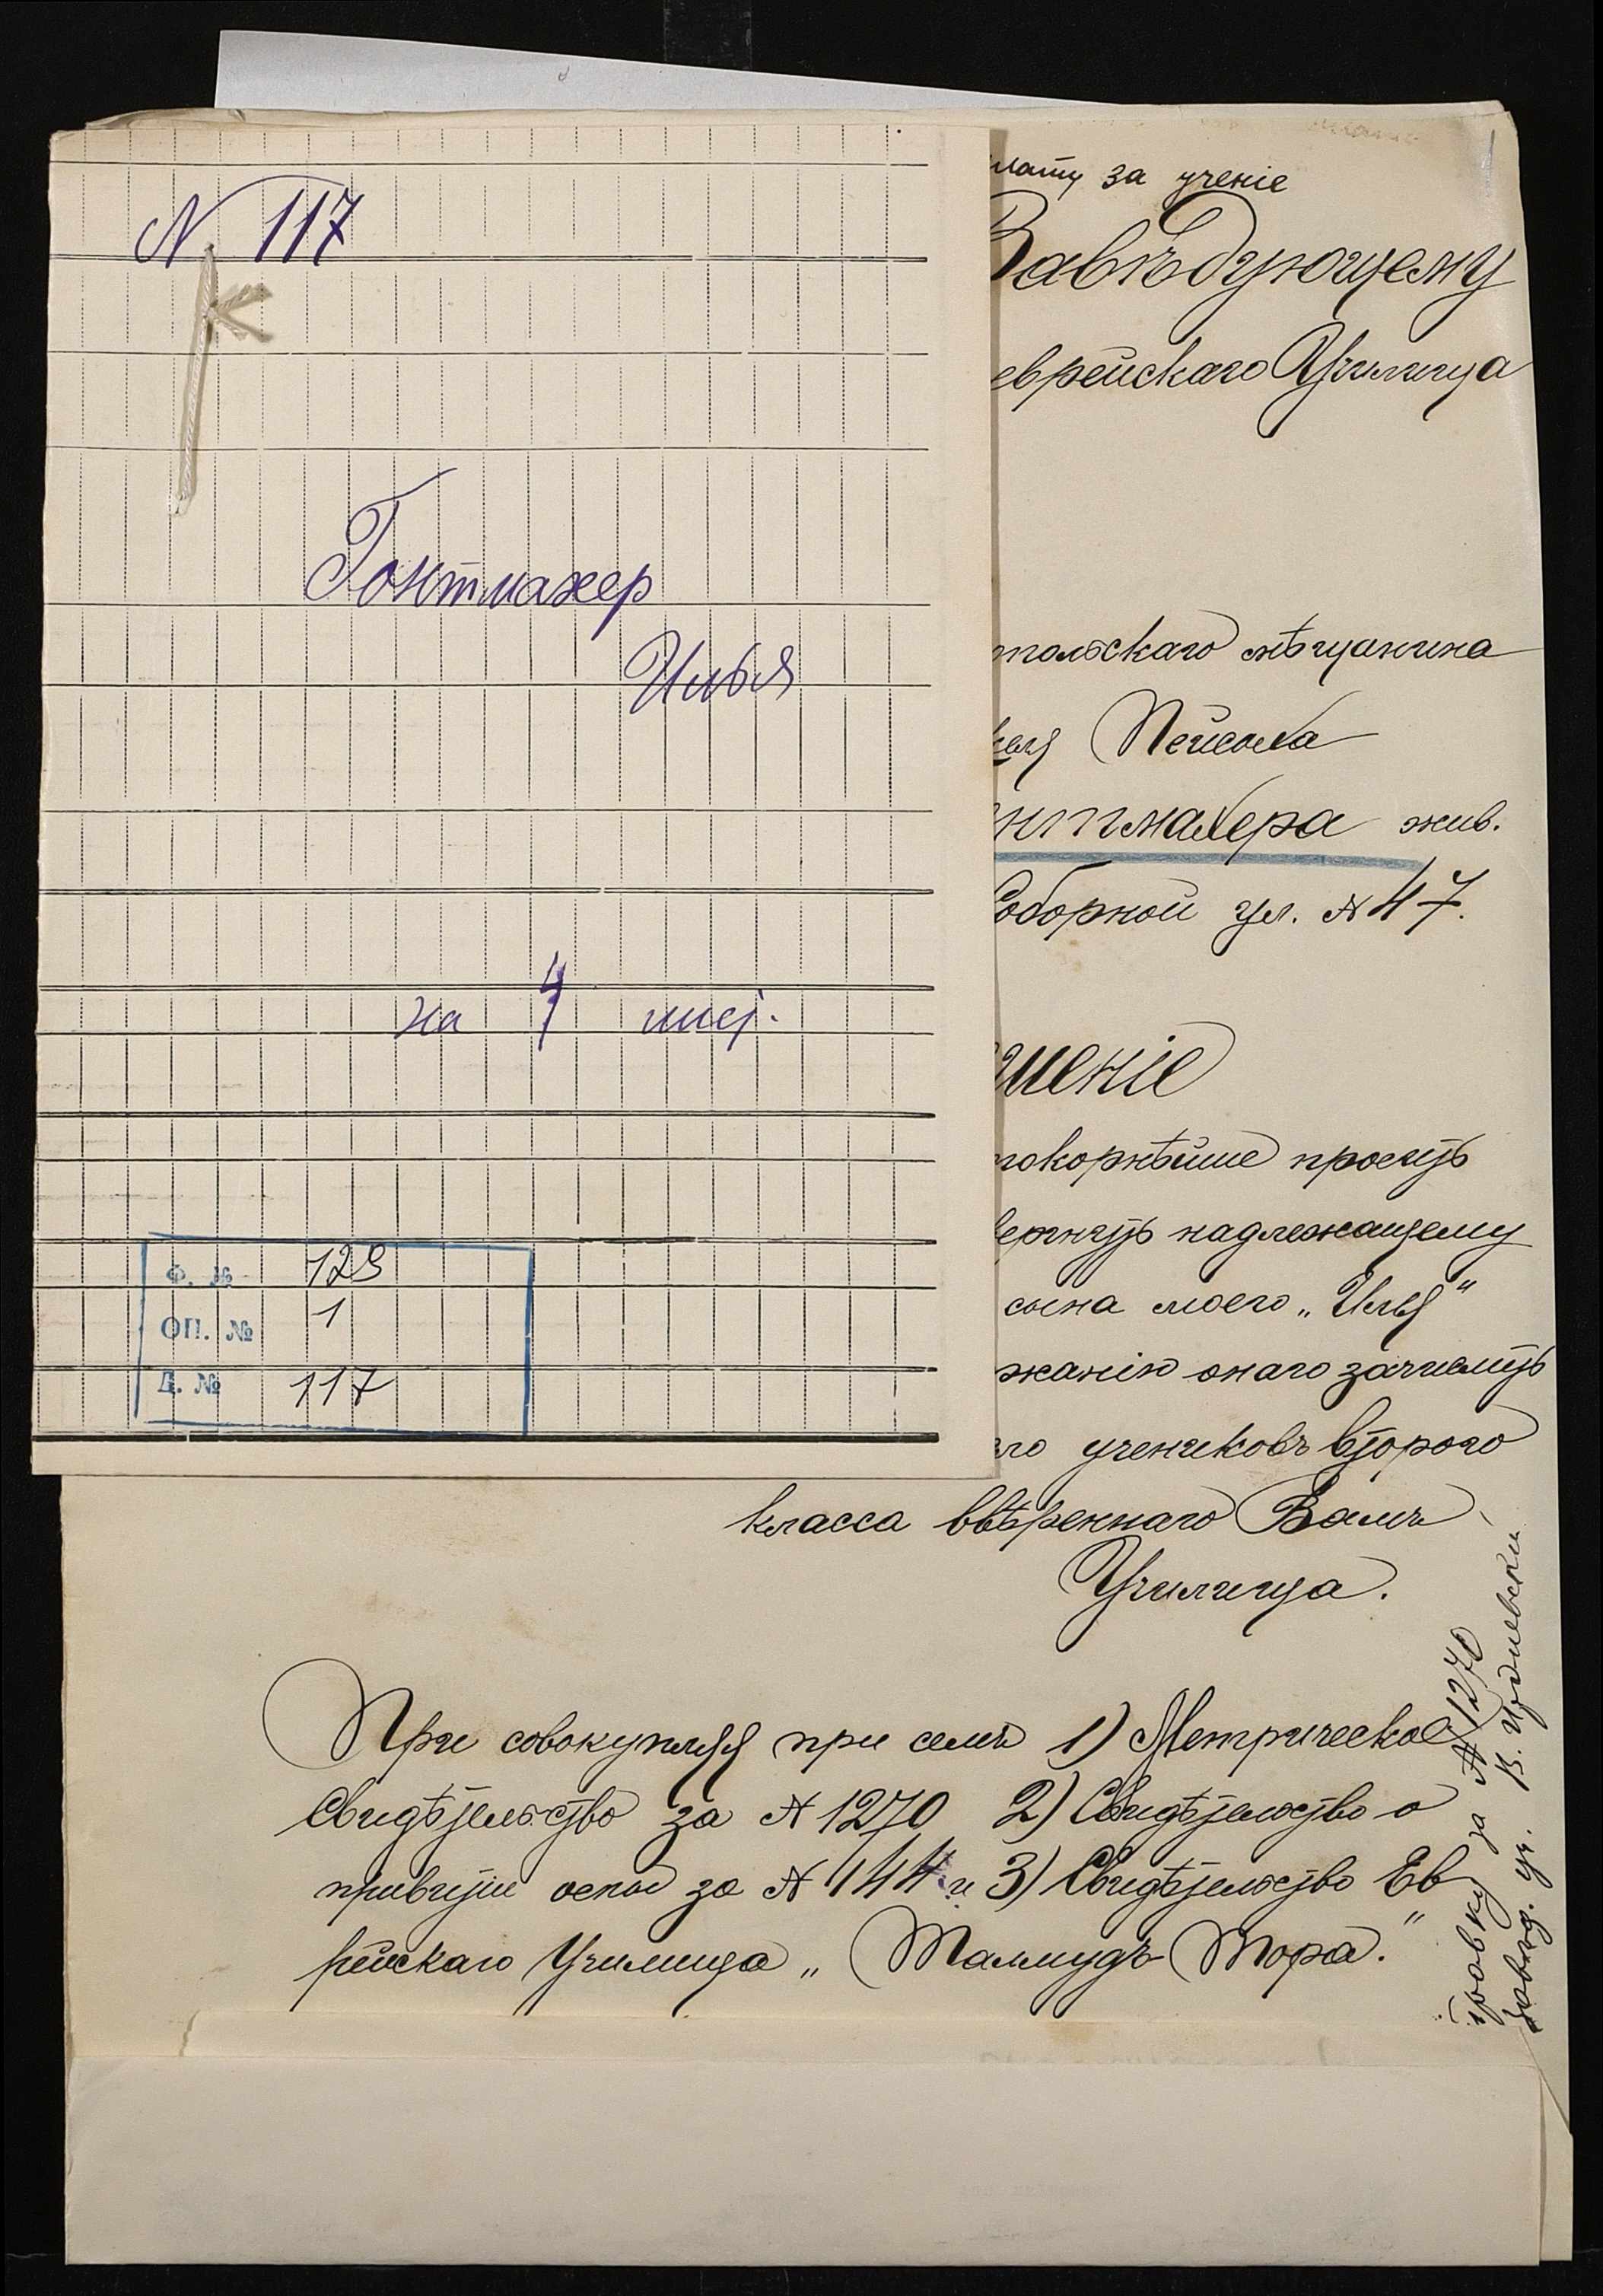 N 117
Гонтмахер
Илья
на 4
Ф. № 129
ОП. № 1
Д. № 117
лату за ученіе
Завѣдующему
еврейскаго Училища
польскаго мѣщанина
Пейсаха
нтмахера жив.
Соборной ул. № 47.
шеніе
покорнѣйше просить
надлежащему
сына моего „Илья"
жанію онаго зачислить
ло учениковъ второго
класса ввѣреннаго Вамъ
Училища.
При совокупляя при семъ 1) Метрическое
Свидѣтельство за № 1270 2) Свидѣтельство о
привитіи оспы за № 144 и 3) Свидѣтельство Ев
рейскаго Училища „Талмудъ Тора."
за № 1270
Завѣд. уч. В.